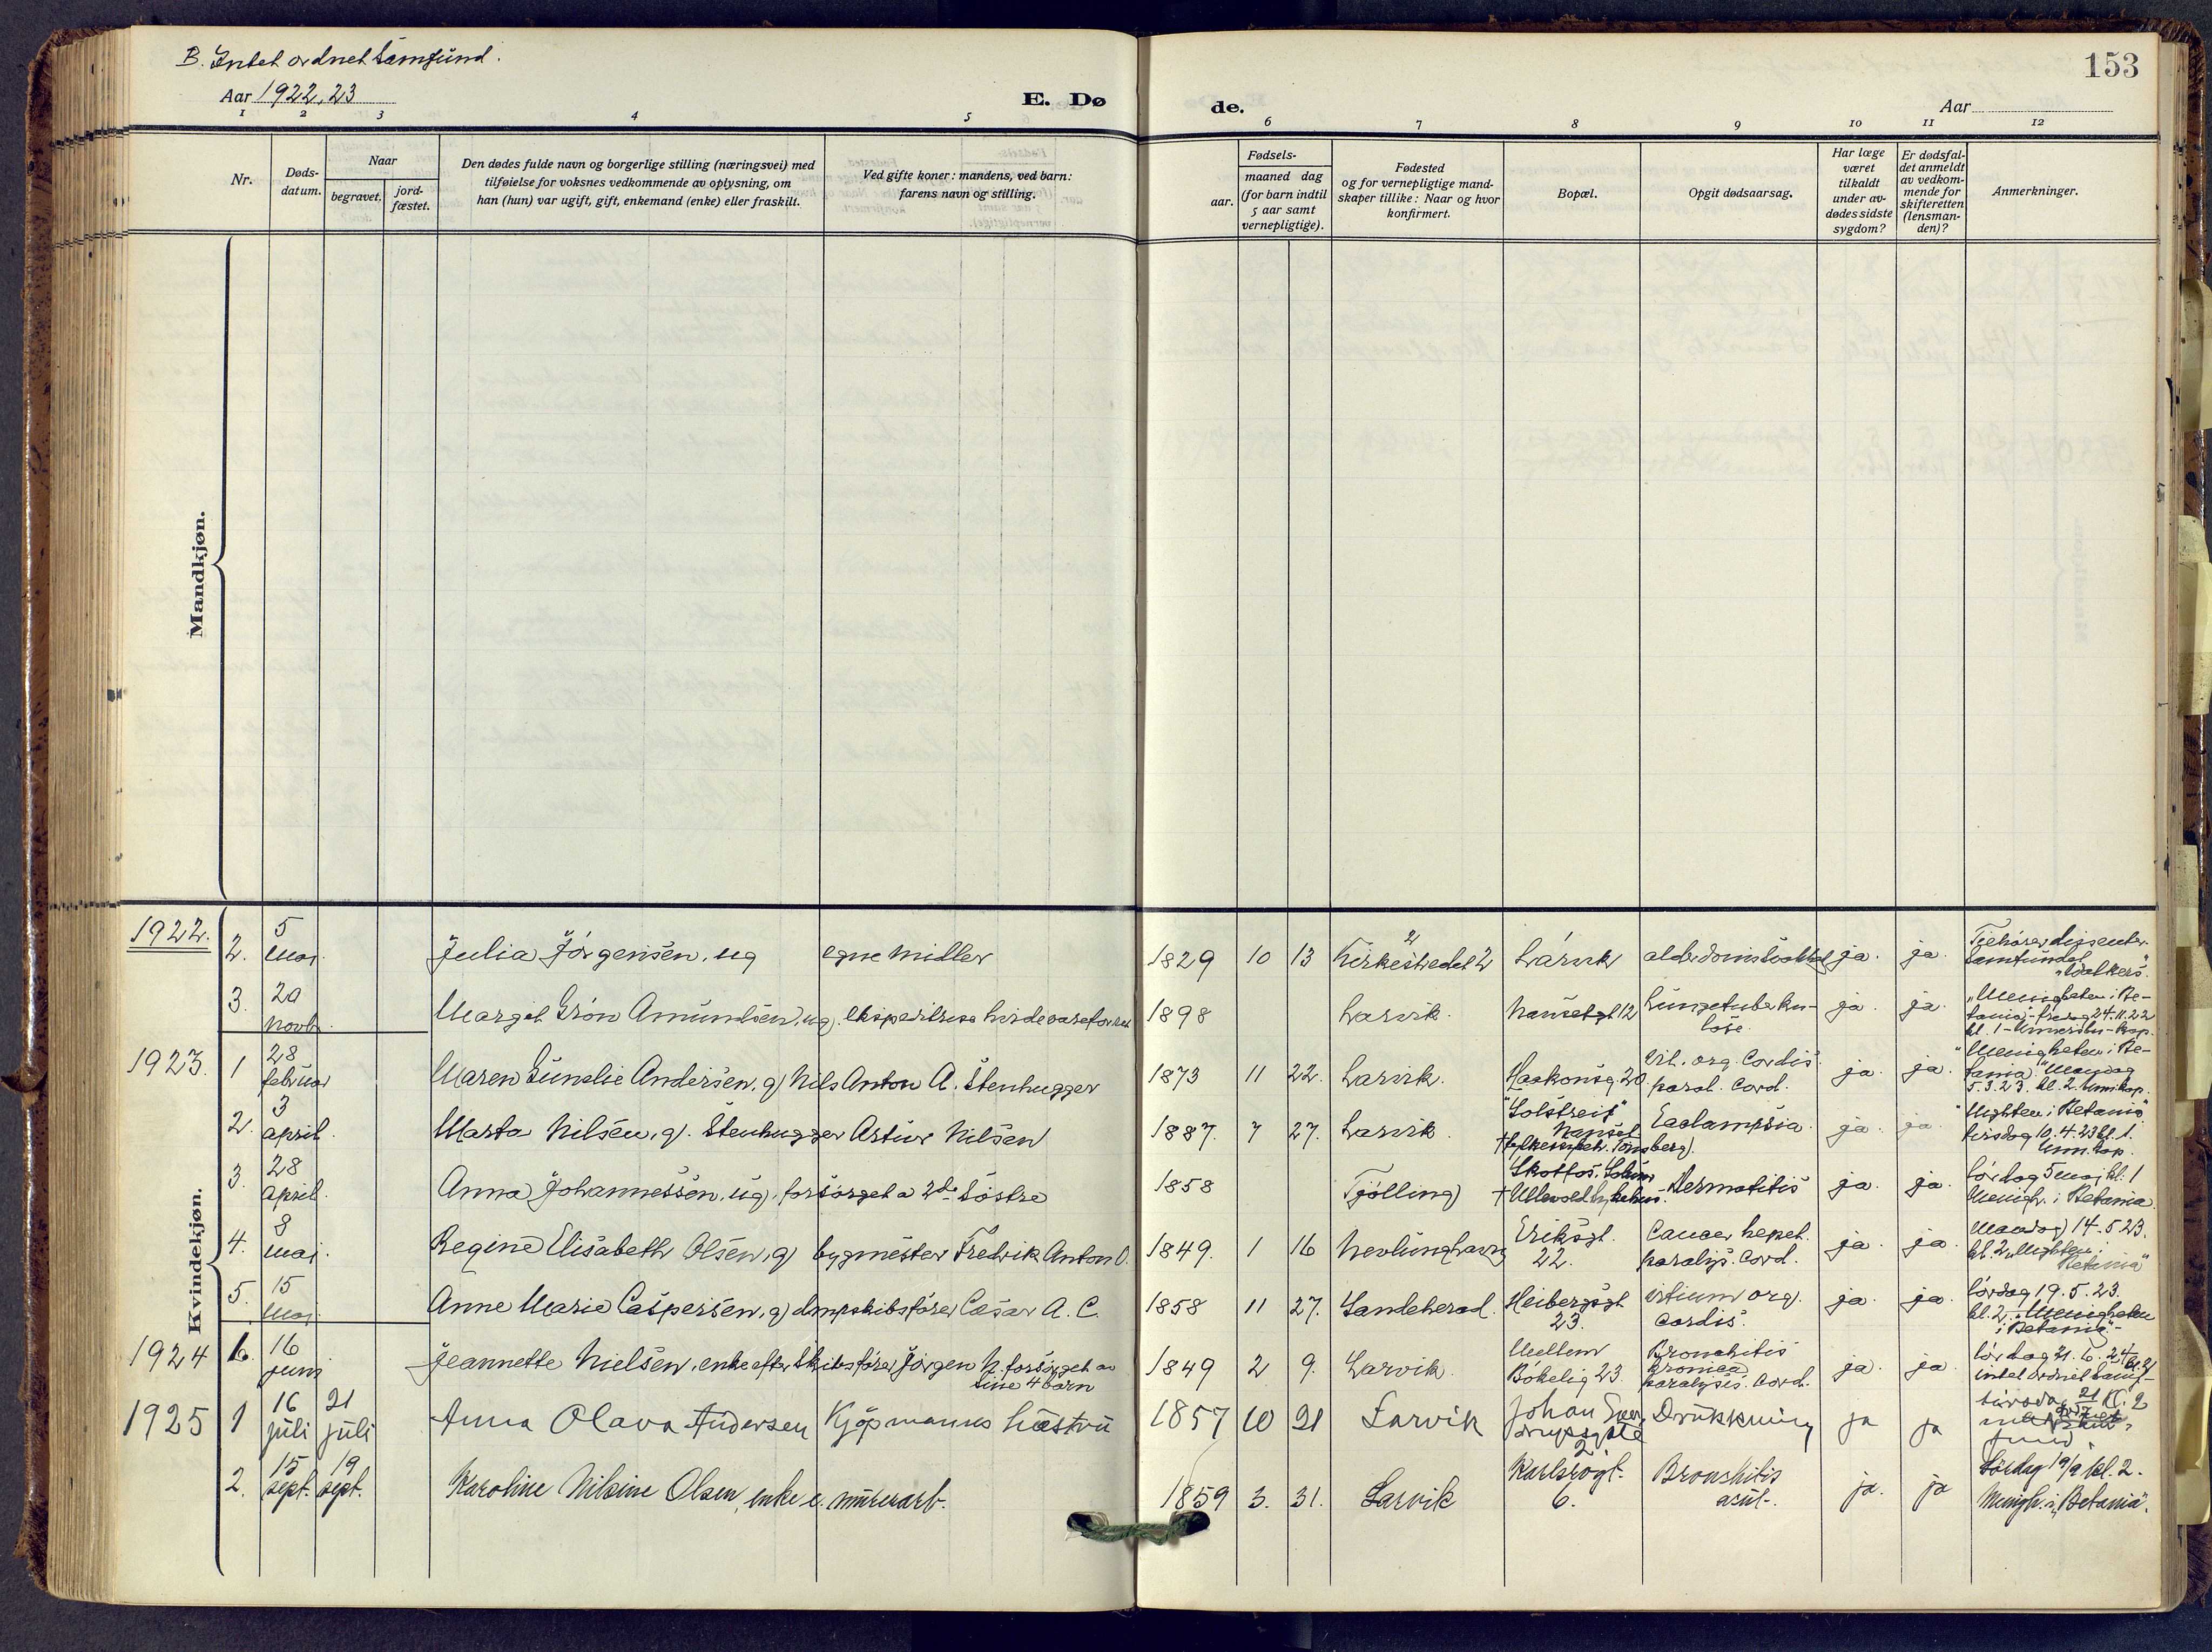 B. Intet ordnet samfund.
Aar 1922, 23
E. Dø
de.
Aar
153
1 2 3 4 5 6 7 8 9 10 11 12
Nr.
Døds-
datum.
Naar
begravet.
jord-
fæstet.
Den dødes fulde navn og borgerlige stilling (næringsvei) med
tilføielse for voksnes vedkommende av oplysning, om
han (hun) var ugift, gift, enkemand (enke) eller fraskilt.
Ved gifte koner: mandens, ved barn:
farens navn og stilling.
Fødsels-
aar. maaned dag
(for barn indtil
5 aar samt
vernepligtige).
Fødested
og for vernepligtige mand-
skaper tillike: Naar og hvor
konfirmert.
Bopæl.
Opgit dødsaarsag.
Har læge
været
tilkaldt
under av-
dødes sidste
sygdom?
Er dødsfal-
det anmeldt
av vedkom-
mende for
skifteretten
(lensman-
den)?
Anmerkninger.
Mandkjøn.
Kvindekjøn.
1922.
2. 5 mai. Julia Jörgensen, ug egne midler 1829 10 13 Kirkestredet 2 Larvik ja. ja.
Tilhörer dissenter-
samfundet
3. 20 novb. Margit Grön Amundsen, ug. 1898 Larvik. Nansetgt 12 Lungetuberku-
lose. ja. ja.
"Menigheten i Be-
tania" fredag 24.11.22
kl. 1
1923. 1 28 februar Maren Gunelie Andersen, g) Nils Anton A. Stenhugger 1873 11 22. Larvik. Haakonsg. 20 Vit. org. Cordis
paral. Cord. ja. ja.
"Menigheten i Be-
tania" Mandag
5.3.23. kl. 2.
2. 3 april. Marta Nilsen, g). Stenhugger Artur Nilsen 1887. 7 27. Larvik. "Solstreif"
Nanset
Tönsberg). Eaclampsia. ja. ja.
i Betania"
tirsdag 10.4.23 kl. 1.
3. 28 april. Anna Johannessen, ug), forsörget a 2de söstre 1858 Tjölling)
† Ullevold sykehus. Dermatitis ja. ja.
lördag 5 maj kl. 1
Menigh. i Betania
4. 8 maj. Regine Elisabeth Olsen, g) bygmester Fredrik Anton O. 1849. 1 16 Nevlunghavn Eriksgt.
22. Cancer hepat.
paralys. Cord. ja. ja.
Mandag) 14.5 23.
kl. 2
Betania"
5. 15 Maj. Anne Marie Caspersen, g) dmpskibsförer Cæsar A. C. 1858 11 27. Sandeherad. Heibergsgt
23. vitium org.
cordis. ja. ja.
lördag 19.5.23.
kl. 2. "Menigheten
i Betania"
1924 6. 16 juni Jeannette Nielsen, enke efter Skibsförer Jörgen N. forsörget av
sine 4 barn 1849 2 9. Larvik. Mellem
Bökelig 23 Bronchitis
kronica
paralysis. Cord. ja. ja.
lördag 21. 6. 24 kl. 2
intet ordnet samf-
1925 1 16 juli 21 juli Anna Olava Andersen Kjöpmanns hustru 1857 10 21 Larvik Johan
2. Drukkning ja ja
2. 15 sept. 19 sept. Karoline Nilsine Olsen, enke e. murerarb. 1859 3. 31. Larvik Karlsrogt.
6. Bronshitis
acut. ja. ja
Lördag 19/9 kl. 2.
Menigh. i "Betania".